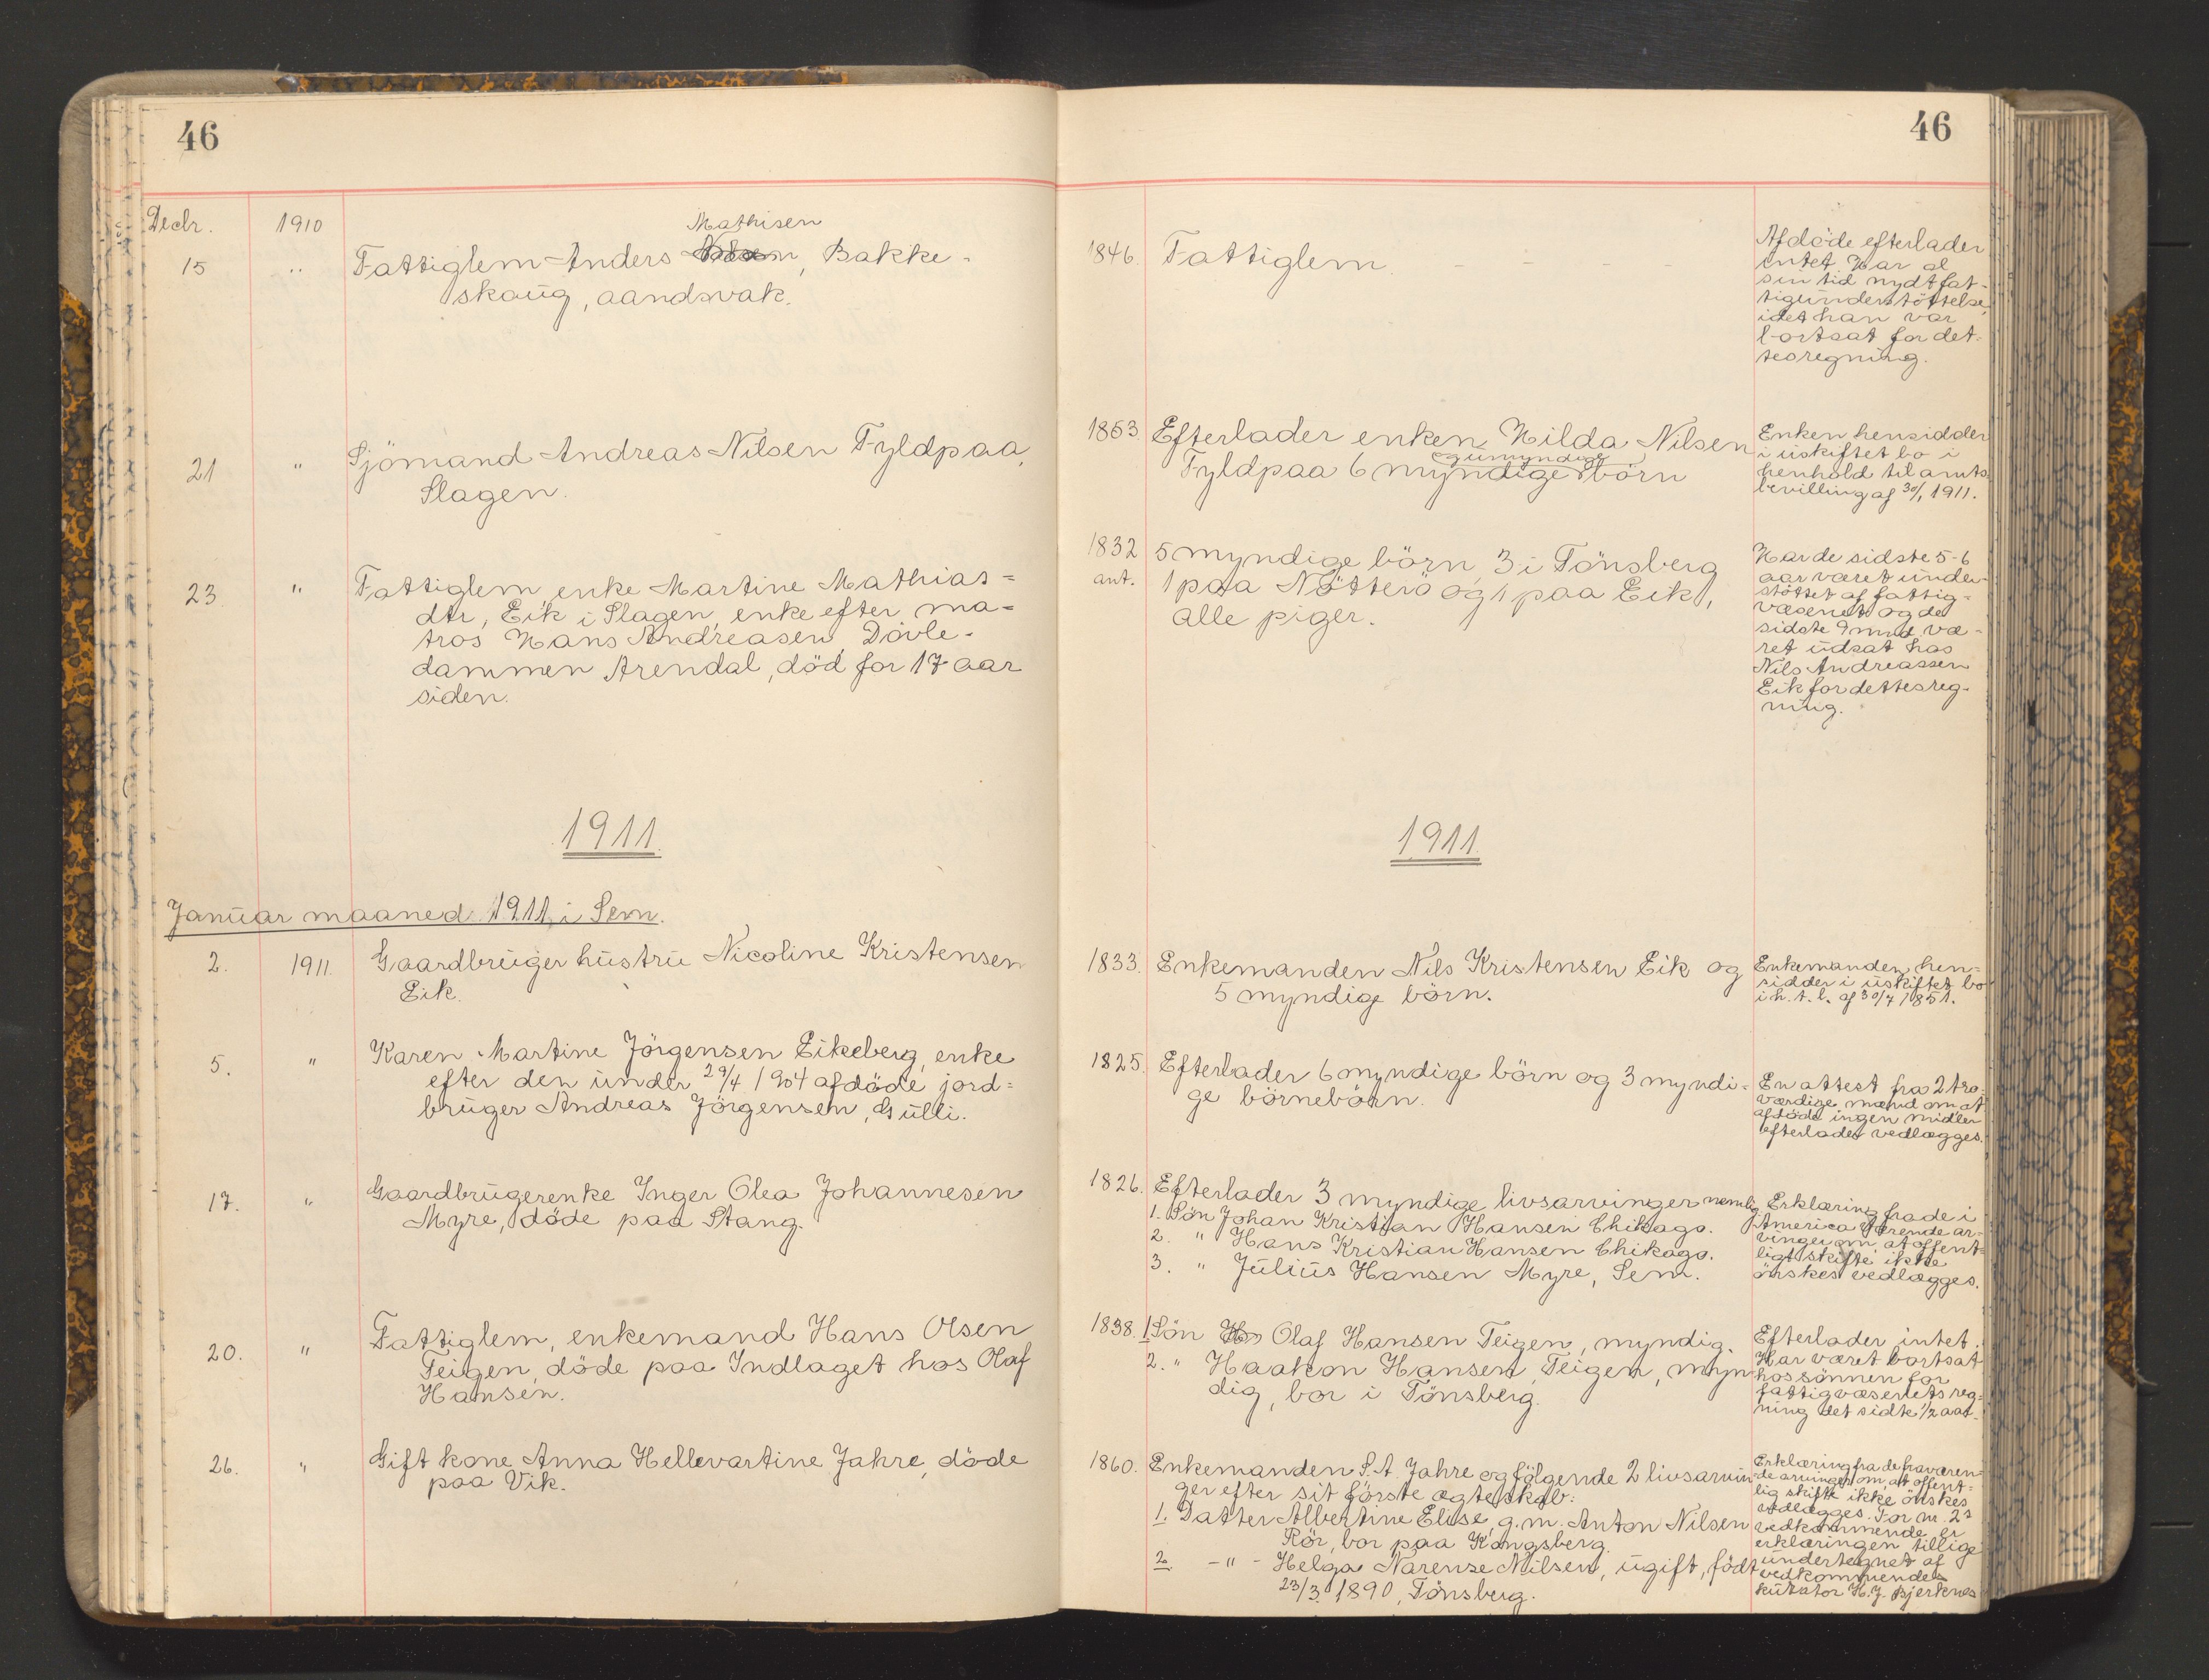 46
Decbr. 1910
15 " Fattiglem Anders Mathisen, Bakke-
skoug, aandsvak.
21 " Sjömand Andreas Nilsen Fyldpaa,
Slagen.
23 " Fattiglem enke Martine Mathias=
dtr, Eik i Slagen, enke efter ma=
tros Hans Andreasen, Dövle-
dammen Arendal, död for 17 aar
siden.
1911.
Januar maaned 1911 i Sem.
2. 1911. Gaardbruger hustru Nicoline Kristensen
Eik.
5. " Karen Martine Jörgensen Eikeberg, enke
efter den under 29/4 1904 afdöde jord=
bruger Andreas Jörgensen, Gulli.
17. " Gaardbrugerenke Inger Olea Johannesen
Myre, döde paa Stang.
20. " Fattiglem, enkemand Hans Olsen
Teigen, döde paa Indlaget hos Olaf
Hansen.
26. " Gift kone Anna Hellevartine Jahre, döde
paa Vik.
46
1846. Fattiglem. - - - -
Afdöde efterlader
intet. Har al
sin tid nydt fat-
tigunderstöttelse,
idet han var
bortsat for det-
tes regning.
1853. Efterlader enken Hilda Nilsen
og umyndige
Fyldpaa 6 myndige börn
Enken hensidder
i uskiftet bo i
henhold til amts
bevilling af 30/1 1911.
1832 5 myndige börn 3 i Tönsberg
ant. 1 paa Nötterö og 1 paa Eik,
alle piger.
Har de sidste 5-6
aar været under-
stöttet af fattig=
væsenet og de
sidste 9 mnd. væ-
ret udsat hos
Nils Andreassen
Eik for dettes reg-
ning.
1911.
1833. Enkemanden Nils Kristensen Eik og
5 myndige börn.
Enkemanden hen=
sidder i uskiftet bo
i h. t. l. af 30/7 1851.
1825. Efterlader 6 myndige börn og 3 myndi=
ge börnebörn.
En attest fra 2 tro-
værdige mænd om at
afdöde ingen midler
efterlader vedlægges.
1826. Efterlader 3 myndige livsarvinger nemlig
1. Sön Johan Kristian Hansen Chikago.
2. " Hans Kristian Hansen Chikago.
3. " Julius Hansen Myre, Sem.
Erklæring fra de i
America værende ar-
vinger om, at offent=
ligt skifte ikke
önskes vedlægges.
1838. 1. Sön Olaf Hansen Teigen, myndig.
2. " Haakon Hansen Teigen, myn-
dig, bor i Tönsberg.
Efterlader intet.
Har været bortsat
hos sönnen for
fattigvæsenets reg=
ning det sidte 1/2 aar.
1860. Enkemanden S. A. Jahre og fölgende 2 livsarvin
ger efter sit förste ægteskab:
1. Datter Albertine Elise, g. m. Anton Nilsen
Rör, bor paa Kongsberg.
2. -"- Helga Narense Nilsen, ugift, födt
23/3 1890, Tönsberg.
Erklæring fra de fraværen-
de arvinger om, at offent=
lig skifte ikke önskes
vedlægges. For nr. 2s
vedkommende er
erklæringen tillige
undertegnet af
vedkommendes
kurator H. J. Bjerknes